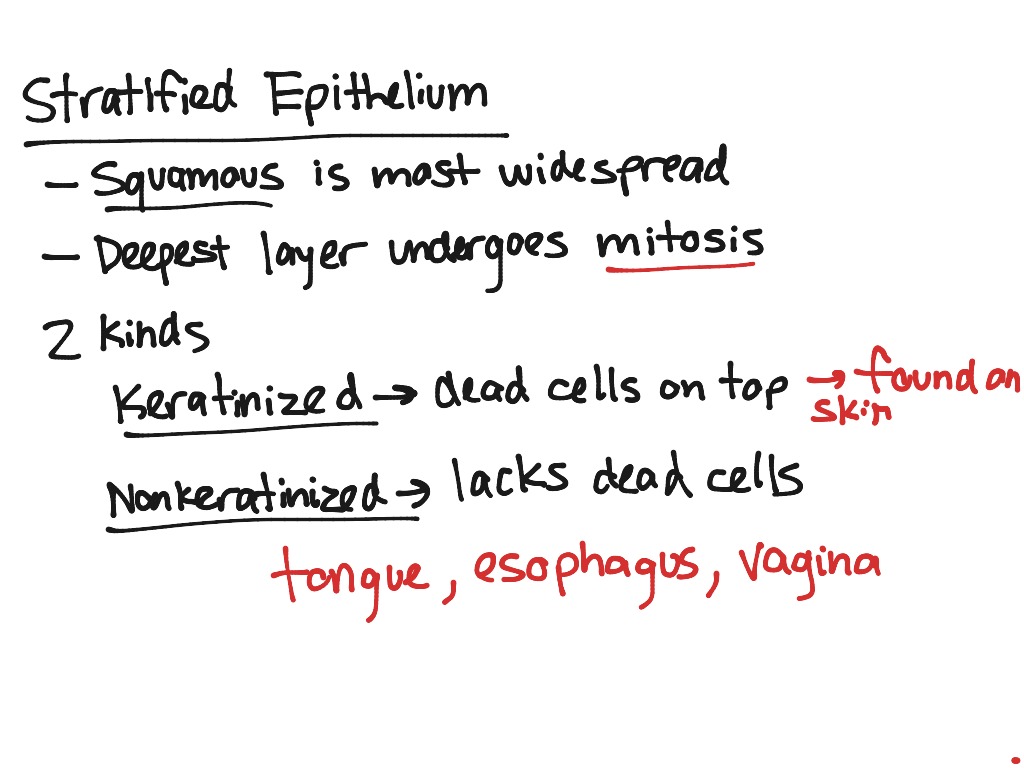 Stratified Epithelium
- Squamous is most widespread
- Deepest layer undergoes mitosis
2 kinds
Keratinized → dead cells on top → found on
skin
Nonkeratinized → lacks dead cells
tongue, esophagus, vagina